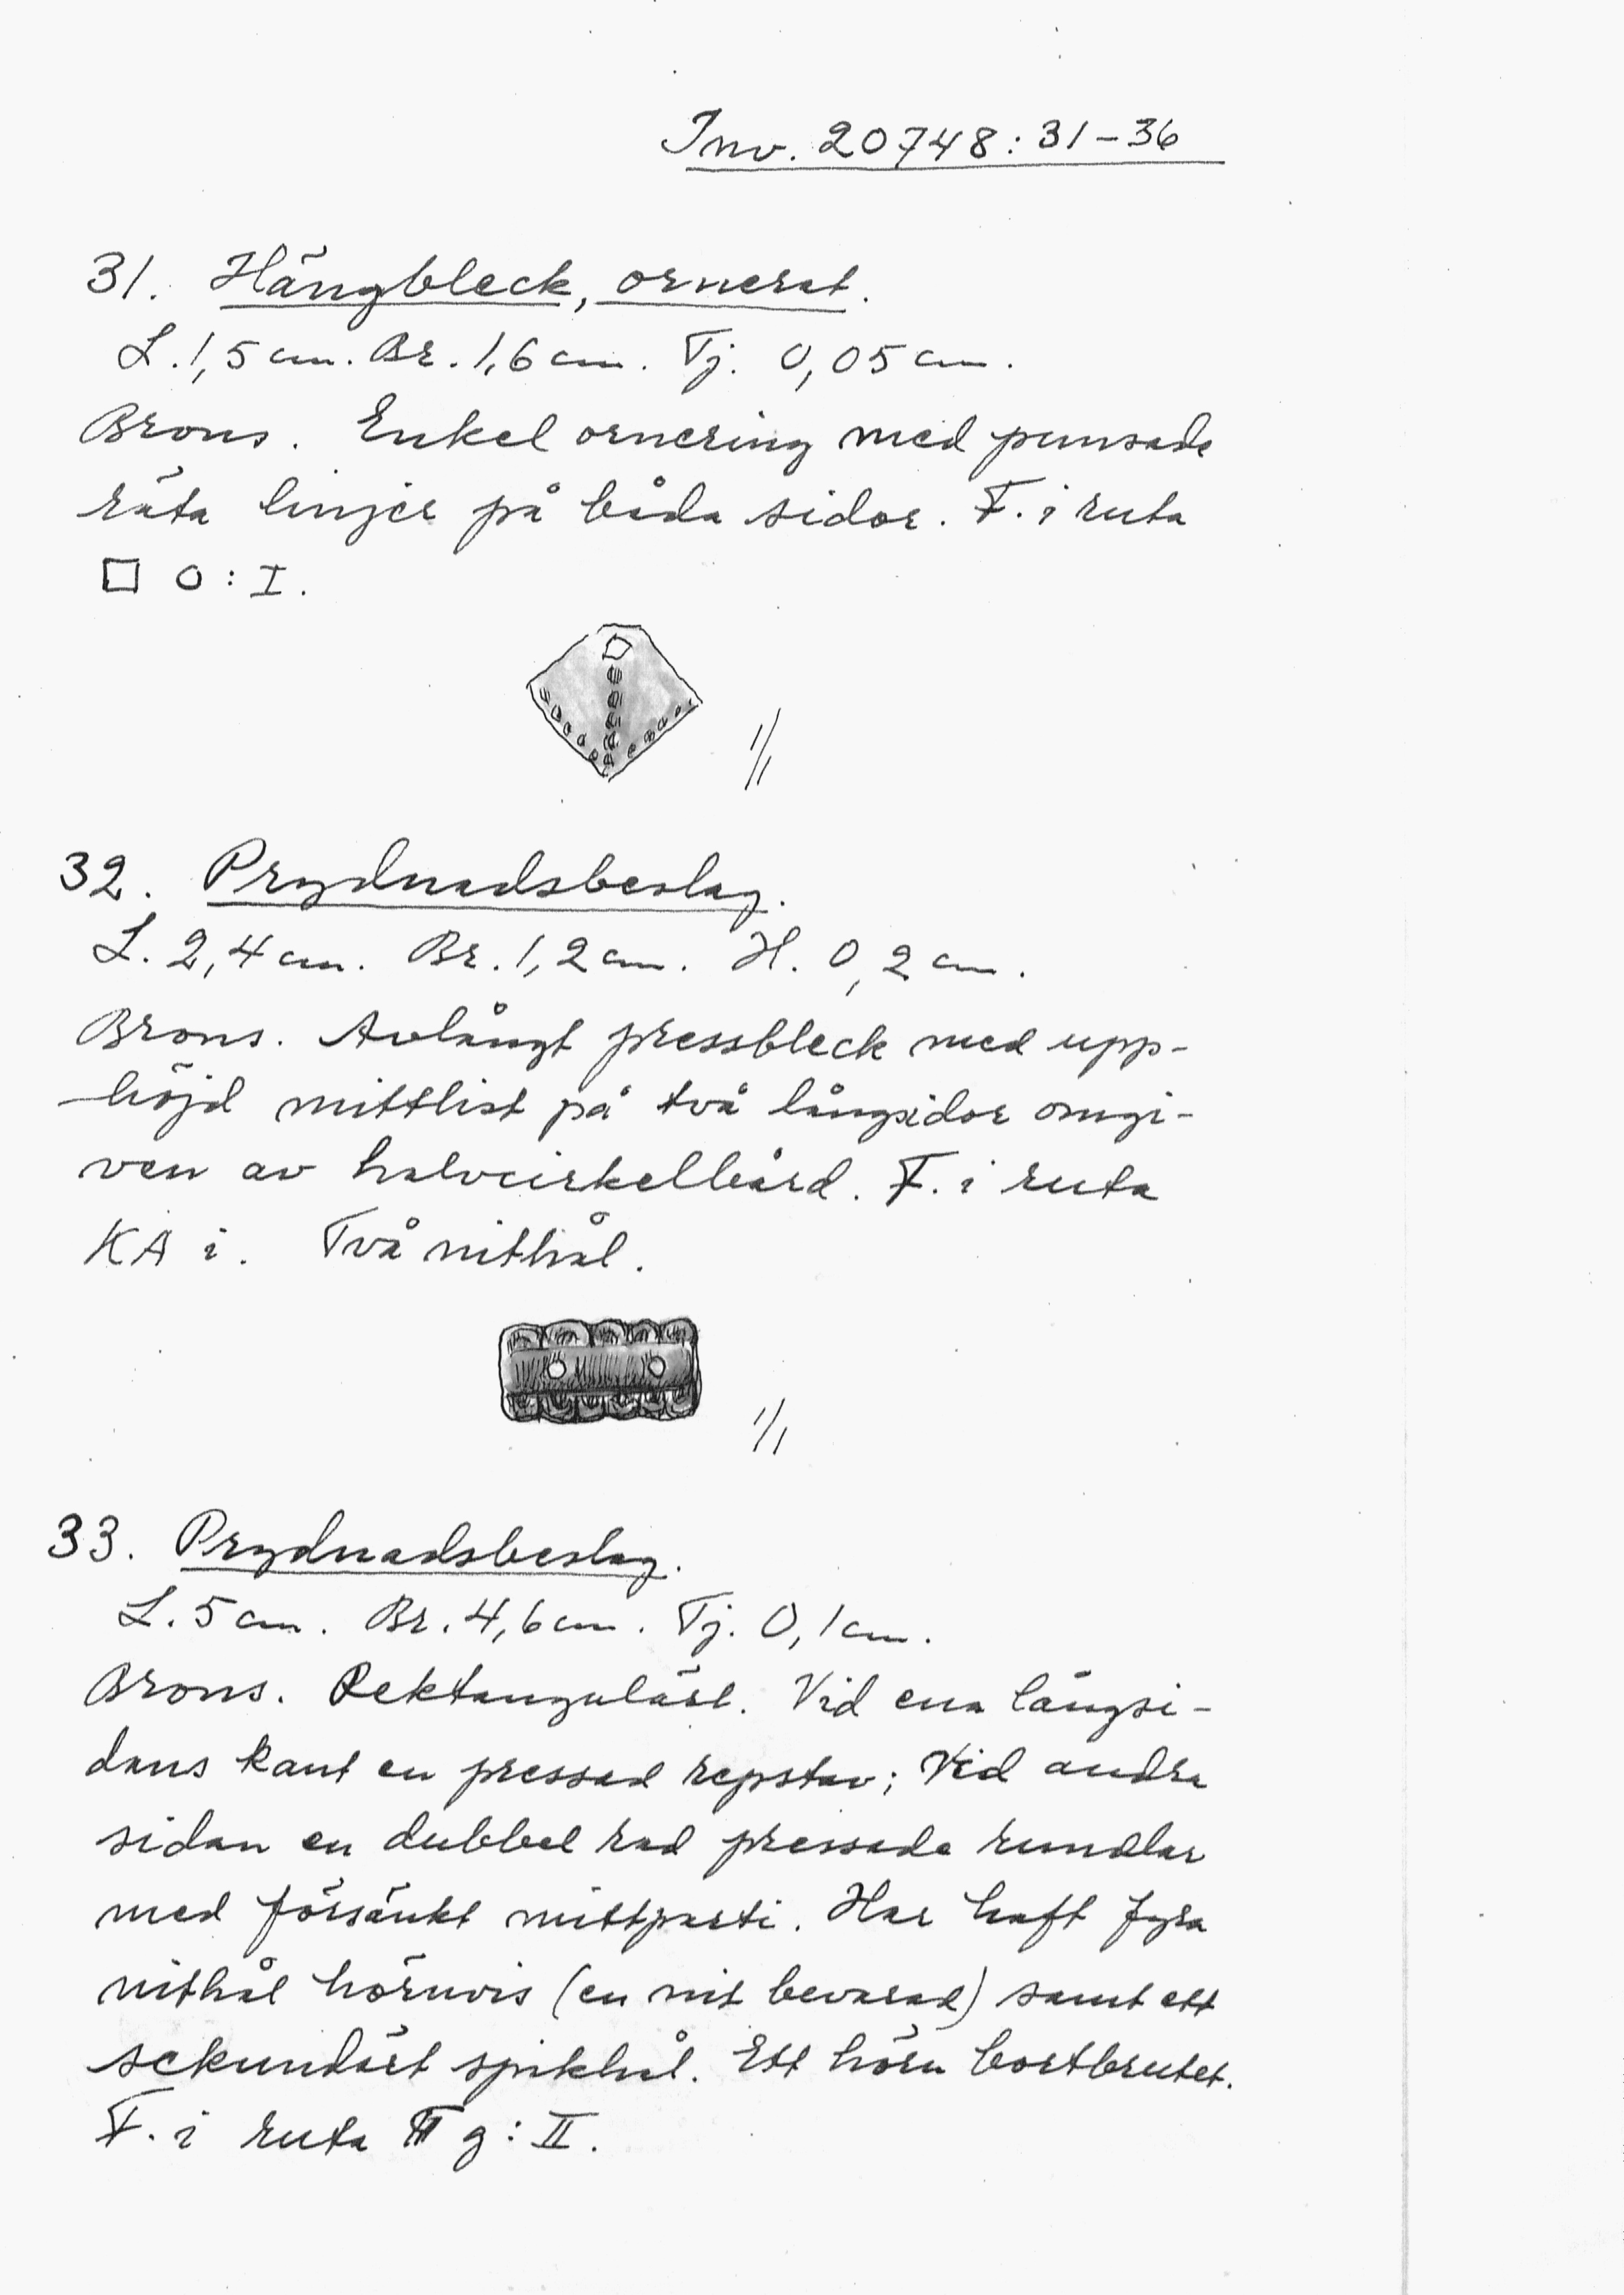 Inv. 20748:31-36
31. Hängbleck, ornerat.
L. 1,5 cm. Br. 1,6 cm. Tj. 0,05 cm.
Brons. Enkel ornering med punsade
räta linjer på båda sidor. F. i ruta
□ O:I.
1/1
32. Prydnadsbeslag.
L. 2,4 cm. Br. 1,2 cm. H. 0,2 cm.
Brons. Avlångt pressbleck med upp-
höjd mittlist på två långsidor omgi-
ven av halvcirkelbård. F. i ruta
KA i. Två nithål.
1/1
33. Prydnadsbeslag.
L. 5 cm. Br. 4,6 cm. Tj. 0,1 cm.
Brons. Rektangulärt. Vid ena långsi-
dans kant en pressad repstav; Vid andra
sidan en dubbel rad pressade rundlar
med försänkt mittparti. Har haft fyra
nithål hörnvis (en nit bevarad) samt ett
sekundärt spikhål. Ett hörn bortbrutet.
F. i ruta g:II.